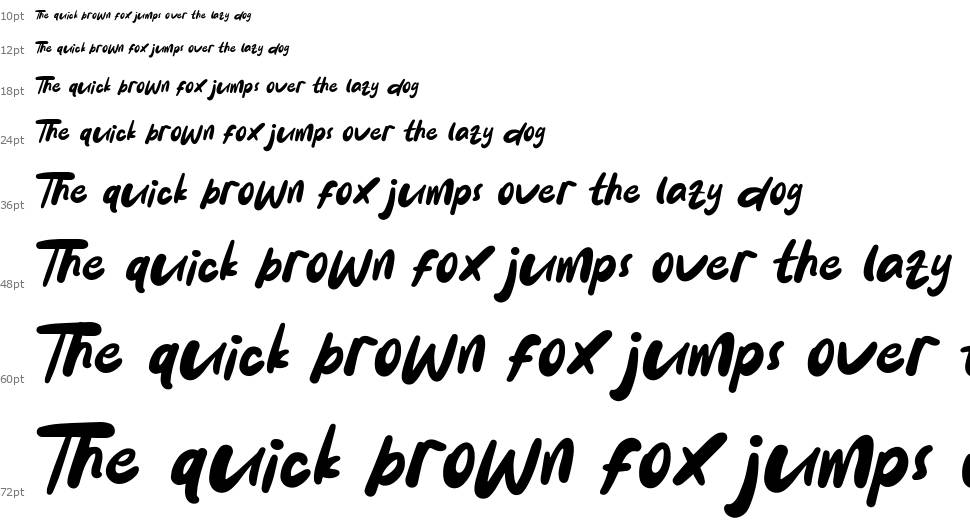 10pt The quick brown fox jumps over the lazy dog
12pt The quick brown fox jumps over the lazy dog
18pt The quick brown fox jumps over the lazy dog
24pt The quick brown fox jumps over the lazy dog
36pt The quick brown fox jumps over the lazy dog
48pt The quick brown fox jumps over the lazy
60pt The quick brown fox jumps over
72pt The quick brown fox jumps